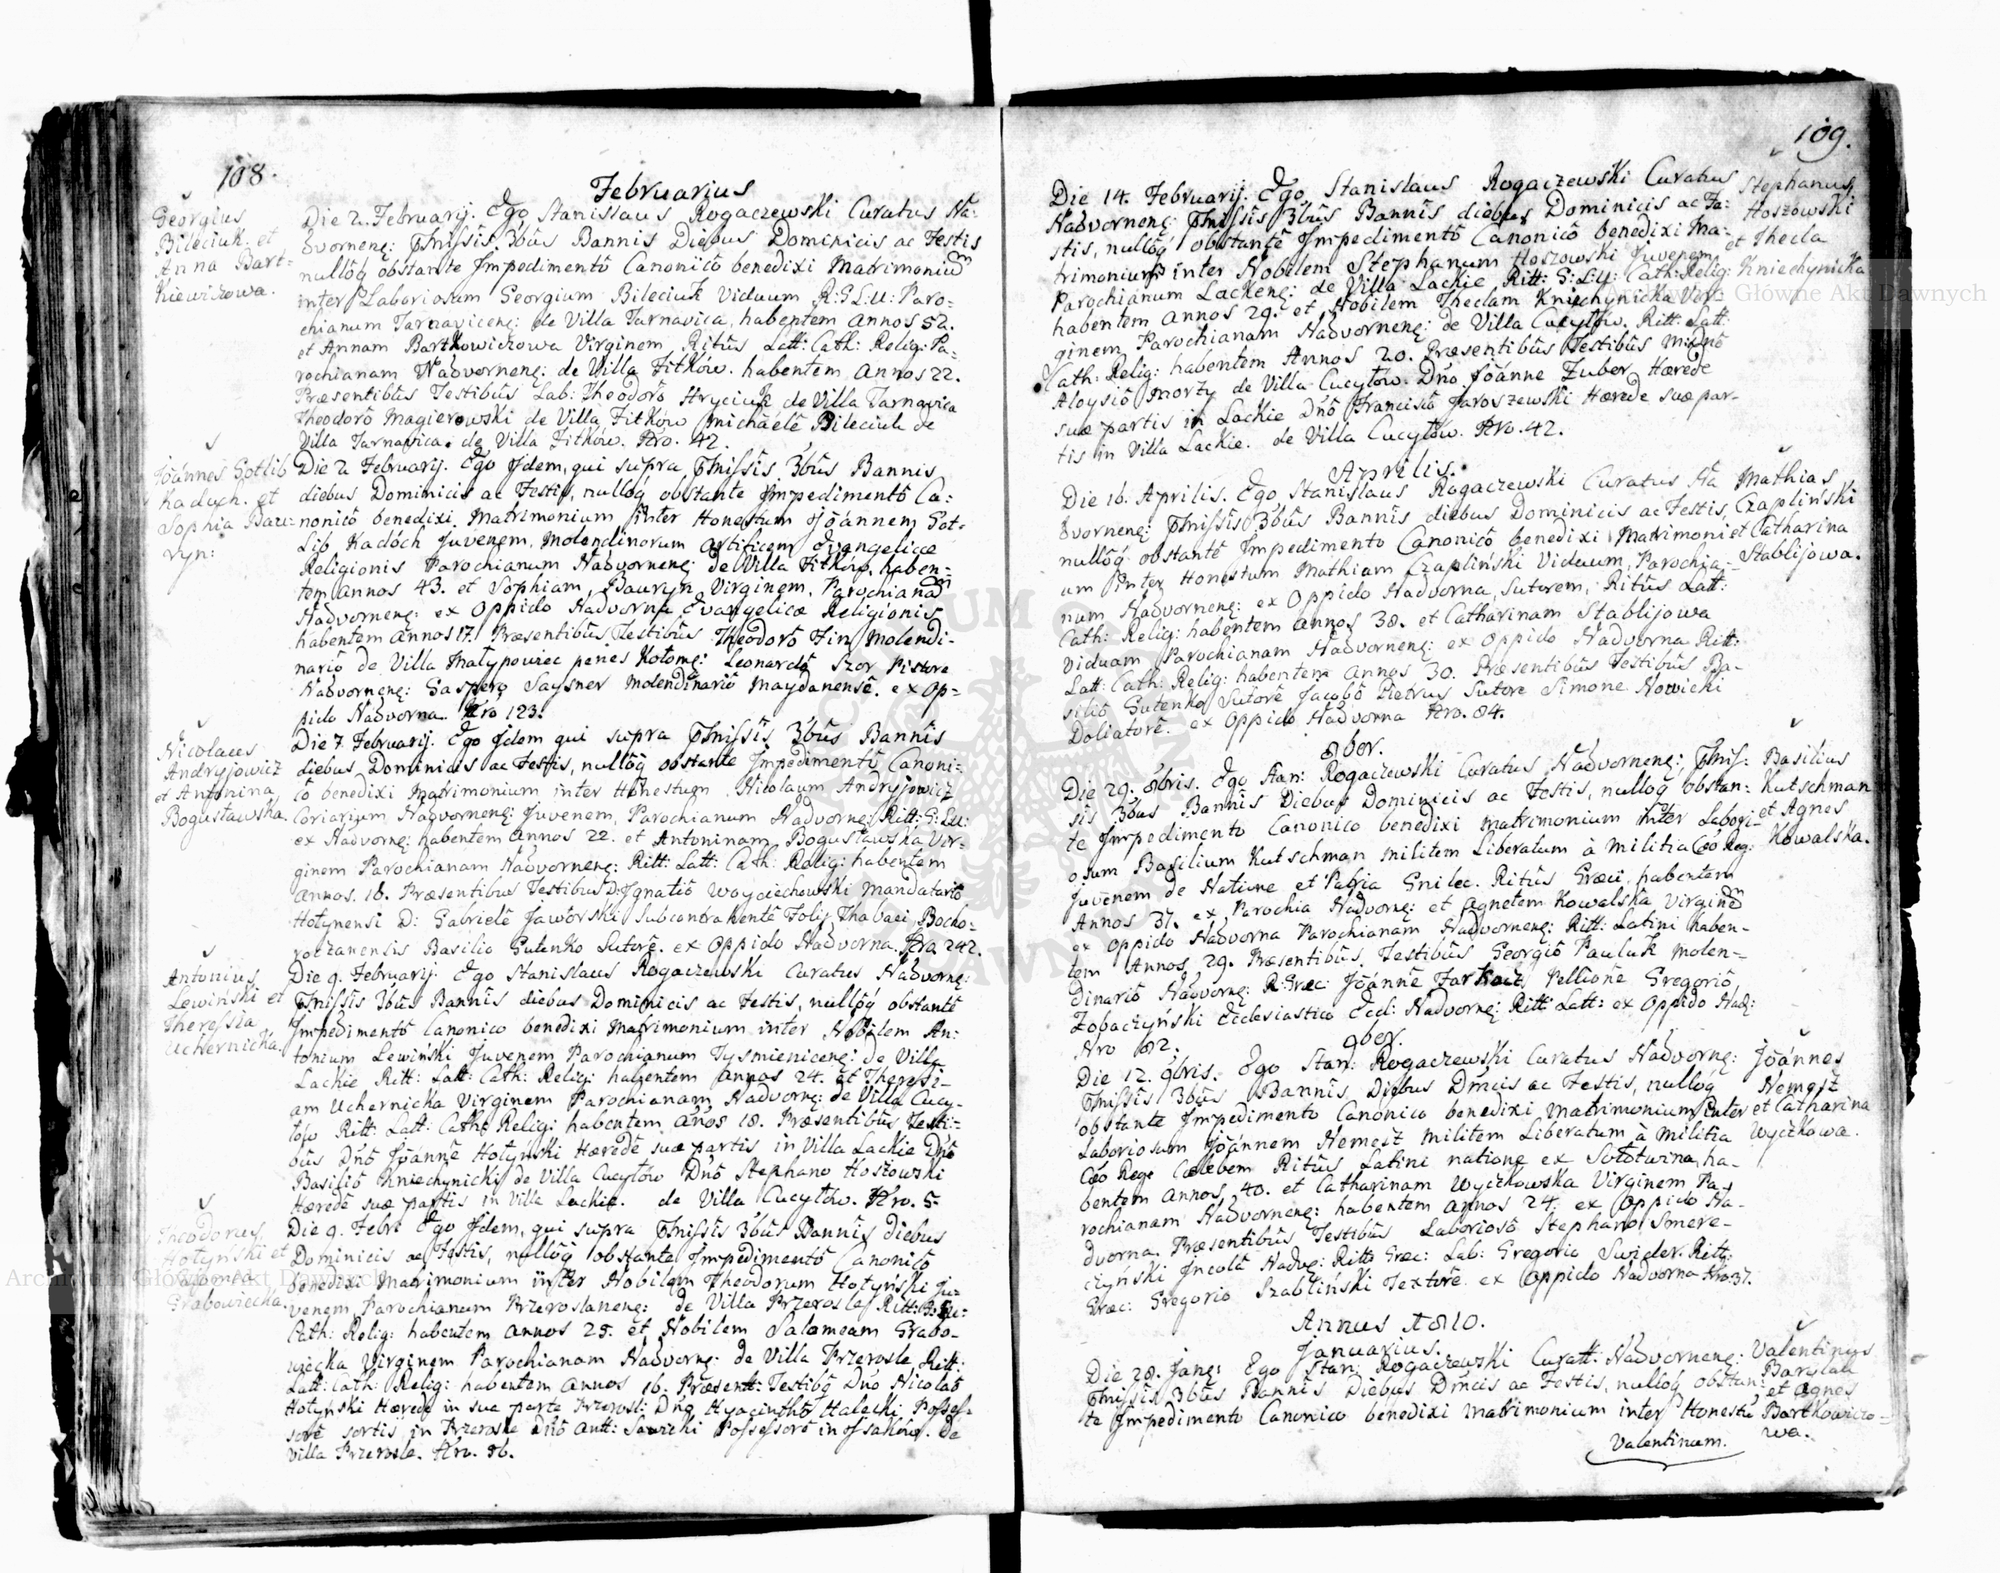 108.
Februarius
Georgius
Bileciuk et
Anna Bart-
kiewiczowa.
Die 2. Februarij. Ego Stanislaus Rogaczewski Curatus Na:
dvornenę: Pmissis 3bus Bannis Diebus Dominicis ac Festis
nullóq obstante Impedimentô Canonicô benedixi Matrimoniū
inter Laboriosum Georgium Bileciuk Viduum R: G: Lu: Paro=
chianum Tarnavicenę: de Villa Tarnavica, habentem Annos 52.
et Annam Bartkowiczowa Virginem Ritûs Latt: Cath: Relig: Pa-
rochianam Nadvornenę: de Villa Fitków. habentem Annos 22.
Præsentibûs Testibûs Lab: Theodorô Hryciuk de Villa Tarnavica
Theodorô Magierowski de Villa Fitków Michaële Bileciuk de
Villa Tarnavica. de Villa Fitków. Nro. 42.
Joánnes Gotlib
Kaduch. et
Sophia Bau-
ryn:
Die 2. Februarij. Ego Idem, qui supra Pmissîs 3bûs Bannis
diebus Dominicis ac Festis, nullóq obstante Impedimentô Ca:
nonicô benedixi Matrimonium inter Honestum Joánnem Got-
lib Kadóch Juvenem, Molendinorum Artificem Evangelicæ
Religionis Parochianum Nadvornenę: de Villa Fitków, haben-
tem Annos 43. et Sophiam Bauryn Virginem, Parochianā
Nadvornenę: ex Oppido Nadvorna Evangelicæ Religionis
habentem Annos 17. Præsentibûs Testibûs Theodorô Fin Molendi-
nariô de Villa Matypowiec penes Kotomę: Leonardô Szor Pistore
Nadvornenę: Gaspere Saysner Molendinariô Maydanensê. ex Op=
pido Nadvorna. Nro 123.
Nicolaus
Andryjowicz
et Antonina
Bogustawska.
Die 7. Februarij. Ego Idem qui supra Pmissîs 3bûs Bannîs
diebus Dominicis ac Festis, nullôq obstante Impedimentô Canoni=
cô benedixi Matrimonium inter Honestum Nicolaum Andryjowicz
Coriarium Nadvornenę: Juvenem, Parochianum Nadvornę: Ritt: G: Lu:
ex Nadvornę: habentem Annos 22. et Antoninam Bogustawska Vir-
ginem Parochianam Nadvornenę: Ritt: Latt: Cath: Relig: habentem
Annos. 18. Præsentibus Testibus D: Ignatiô Woyciechowski Mandatariô
Hotynensi D: Gabrielê Jaworski Subcontrahentê Folij Thabaci Bocho-
roczanensis Basilio Gutenko Sutore. ex Oppido Nadvorna. Nro 242.
Antonius
Lewiński et
Theressia
Uchernicka.
Die 9. Februarij. Ego Stanislaus Rogaczewski Curatus Nadvornę:
Pmissîs 3bûs Bannîs diebus Dominicis ac Festis, nullôq obstantê
Impedimentô Canonico benedixi Matrimonium inter Nobilem An:
tonium Lewiński Juvenem Parochianum Tysmienicenę: de Villa
Lackie Ritt: Latt: Cath: Relig: habentem Annos 24. et Theresi-
am Uchernicka Virginem Parochianam Nadvornę: de Villa Cucy-
tów Ritt: Latt: Cath: Relig: habentem años 18. Præsentibûs Testi-
bûs Dnô Joánne Hotyński Hæredê suæ partis in Villa Lackie Dnô
Basiliô Kniechynicki de Villa Cucytów Dnô Stephano Hoszowski
Hærede suæ partis in Villa Lackie. de Villa Cucytów. Nro. 5.
Theodorus
Hotyński et
Salomea
Grabowiecka.
Die 9. Febr: Ego Idem, qui supra Pmissîs 3bûs Bannîs diebus
Dominicis ac Festis, nullôq obstante Impedimentô Canonicô
benedixi Matrimonium inter Nobilem Theodorum Hotyński Ju-
venem Parochianum Przeroslanenę: de Villa Przerosle Ritt: G: Lu:
Cath: Relig: habentem Annos 25. et Nobilem Salomeam Grabo-
wiecka Virginem Parochianam Nadvornę: de Villa Przerosle Ritt:
Latt: Cath: Relig: habentem Annos 16. Præsentt: Testibq Dnô Nicolaô
Hotyński Hærede in sua parte Przerosli Dnô Hyacinthô Halecki Posses-
sorê sortis in Przerosle Dnô Antt: Sawicki Possessorê in Isaków. de
Villa Przerosle. Nro. 86.
109.
Die 14. Februarij. Ego Stanislaus Rogaczewski Curatus
Nadvornenę: Pmissîs 3bûs Bannîs diebus Dominicis ac Fe-
stis, nullôq obstantê Impedimentô Canonicô benedixi Ma-
trimonium inter Nobilem Stephanum Hoszowski Juvenem
Parochianum Lackenę: de Villa Lackie Ritt: G: Lu: Cath: Relig:
habentem Annos 29. et Nobilem Theclam Kniechynicka Vir-
ginem Parochianam Nadvornenę: de Villa Cucytów. Ritt: Latt:
Cath: Relig: habentem Annos 20. Præsentibûs Testibûs
Aloysiô Morzy de Villa Cucytów. Dnô Joánne Zuber Hærede
suæ partis in Lackie Dnô Franciscô Jaroszewski Hærede suæ par-
tis in Villa Lackie. de Villa Cucytów. Nro. 42.
Stephanus
Hoszowski
et Thecla
Kniechynicka
Aprilis.
Die 16. Aprilis. Ego Stanislaus Rogaczewski Curatus Na
dvornenę: Pmissîs 3bûs Bannîs diebus Dominicis ac Festis,
nullôq obstantê Impedimento Canonicô benedixi Matrimoni
um inter Honestum Mathiam Czapliński Viduum, Parochia-
num Nadvornenę: ex Oppido Nadvorna, Sutorem, Ritûs Latt:
Cath: Relig: habentem Annos 38. et Catharinam Stablijowa
Viduam Parochianam Nadvornenę: ex Oppido Nadvorna Ritt:
Latt: Cath: Relig: habentem Annos 30. Præsentibûs Testibûs Ba-
siliô Gutenko Sutorê Jacobô Pietrus Sutore Simone Nowicki
Doliatorê. ex Oppido Nadvorna Nro. 84.
Mathias
Czapliński
et Catharina
Stablijowa.
8ber.
Die 29. 8bris. Ego Stan: Rogaczewski Curatus Nadvornenę: Pmis-
sis 3bus Bannis Diebus Dominicis ac Festis, nulloq obstan-
te Impedimento Canonico benedixi Matrimonium inter Labori-
osum Basilium Kutschman Militem Liberatum à Militia Cæo Reg:
Juvenem de Natione et Patria Gnilec. Ritûs Græci. habentem
Annos 37. ex Parochia Nadvornę: et Agnetem Kowalska Virginē
ex Oppido Nadvorna Parochianam Nadvornenę: Ritt: Latini haben-
tem Annos 29. Præsentibûs, Testibûs Georgiô Pauluk Molen-
dinariô Nadvornę: R: Græc: Joánnê Pellione Gregoriô
Zobaczyński Ecclesiastico Eccl: Nadvornę: Ritt: Latt: ex Oppido Nadę:
Nro 82.
Basilius
Kutschman
et Agnes
Kowalska.
9ber.
Die 12. 9bris. Ego Stan: Rogaczewski Curatus Nadvornę:
Pmissîs 3bûs Bannîs Diebus Dnicis ac Festis, nullôq
obstante Impedimento Canonico benedixi Matrimonium inter
Laboriosum Joánnem Nemejz Militem Liberatum à Militia
Cæo Rege Cælebem Ritûs Latini natione ex Sototwina, ha-
bentem Annos 40. et Catharinam Wyczkowska Virginem Pa-
rochianam Nadvornenę: habentem Annos 24. ex Oppido Na-
dvorna. Præsentibûs Testibûs Laboriosô Stephano Smere-
czyński Incolâ Nadvę: Ritts Græc: Lab: Gregorio Swider Ritt:
Græc: Gregorio Szabliński Textorê. ex Oppido Nadvorna Nro 37.
Joánnes
Nemejz
et Catharina
Wyczkowa.
Annus 1810.
Januarius.
Die 28. Janę: Ego Stan: Rogaczewski Curatt: Nadvornenę:
Pmissîs 3bûs Bannîs Diebus Dnicis ac Festis, nullôq obstan-
te Impedimento Canonico benedixi Matrimonium inter Honestū
Valentinum.
Valentinus
Barylak
et Agnes
Bartkowiczo-
wa.
Archiwum Główne Akt Dawnych
Archiwum Główne Akt Dawnych